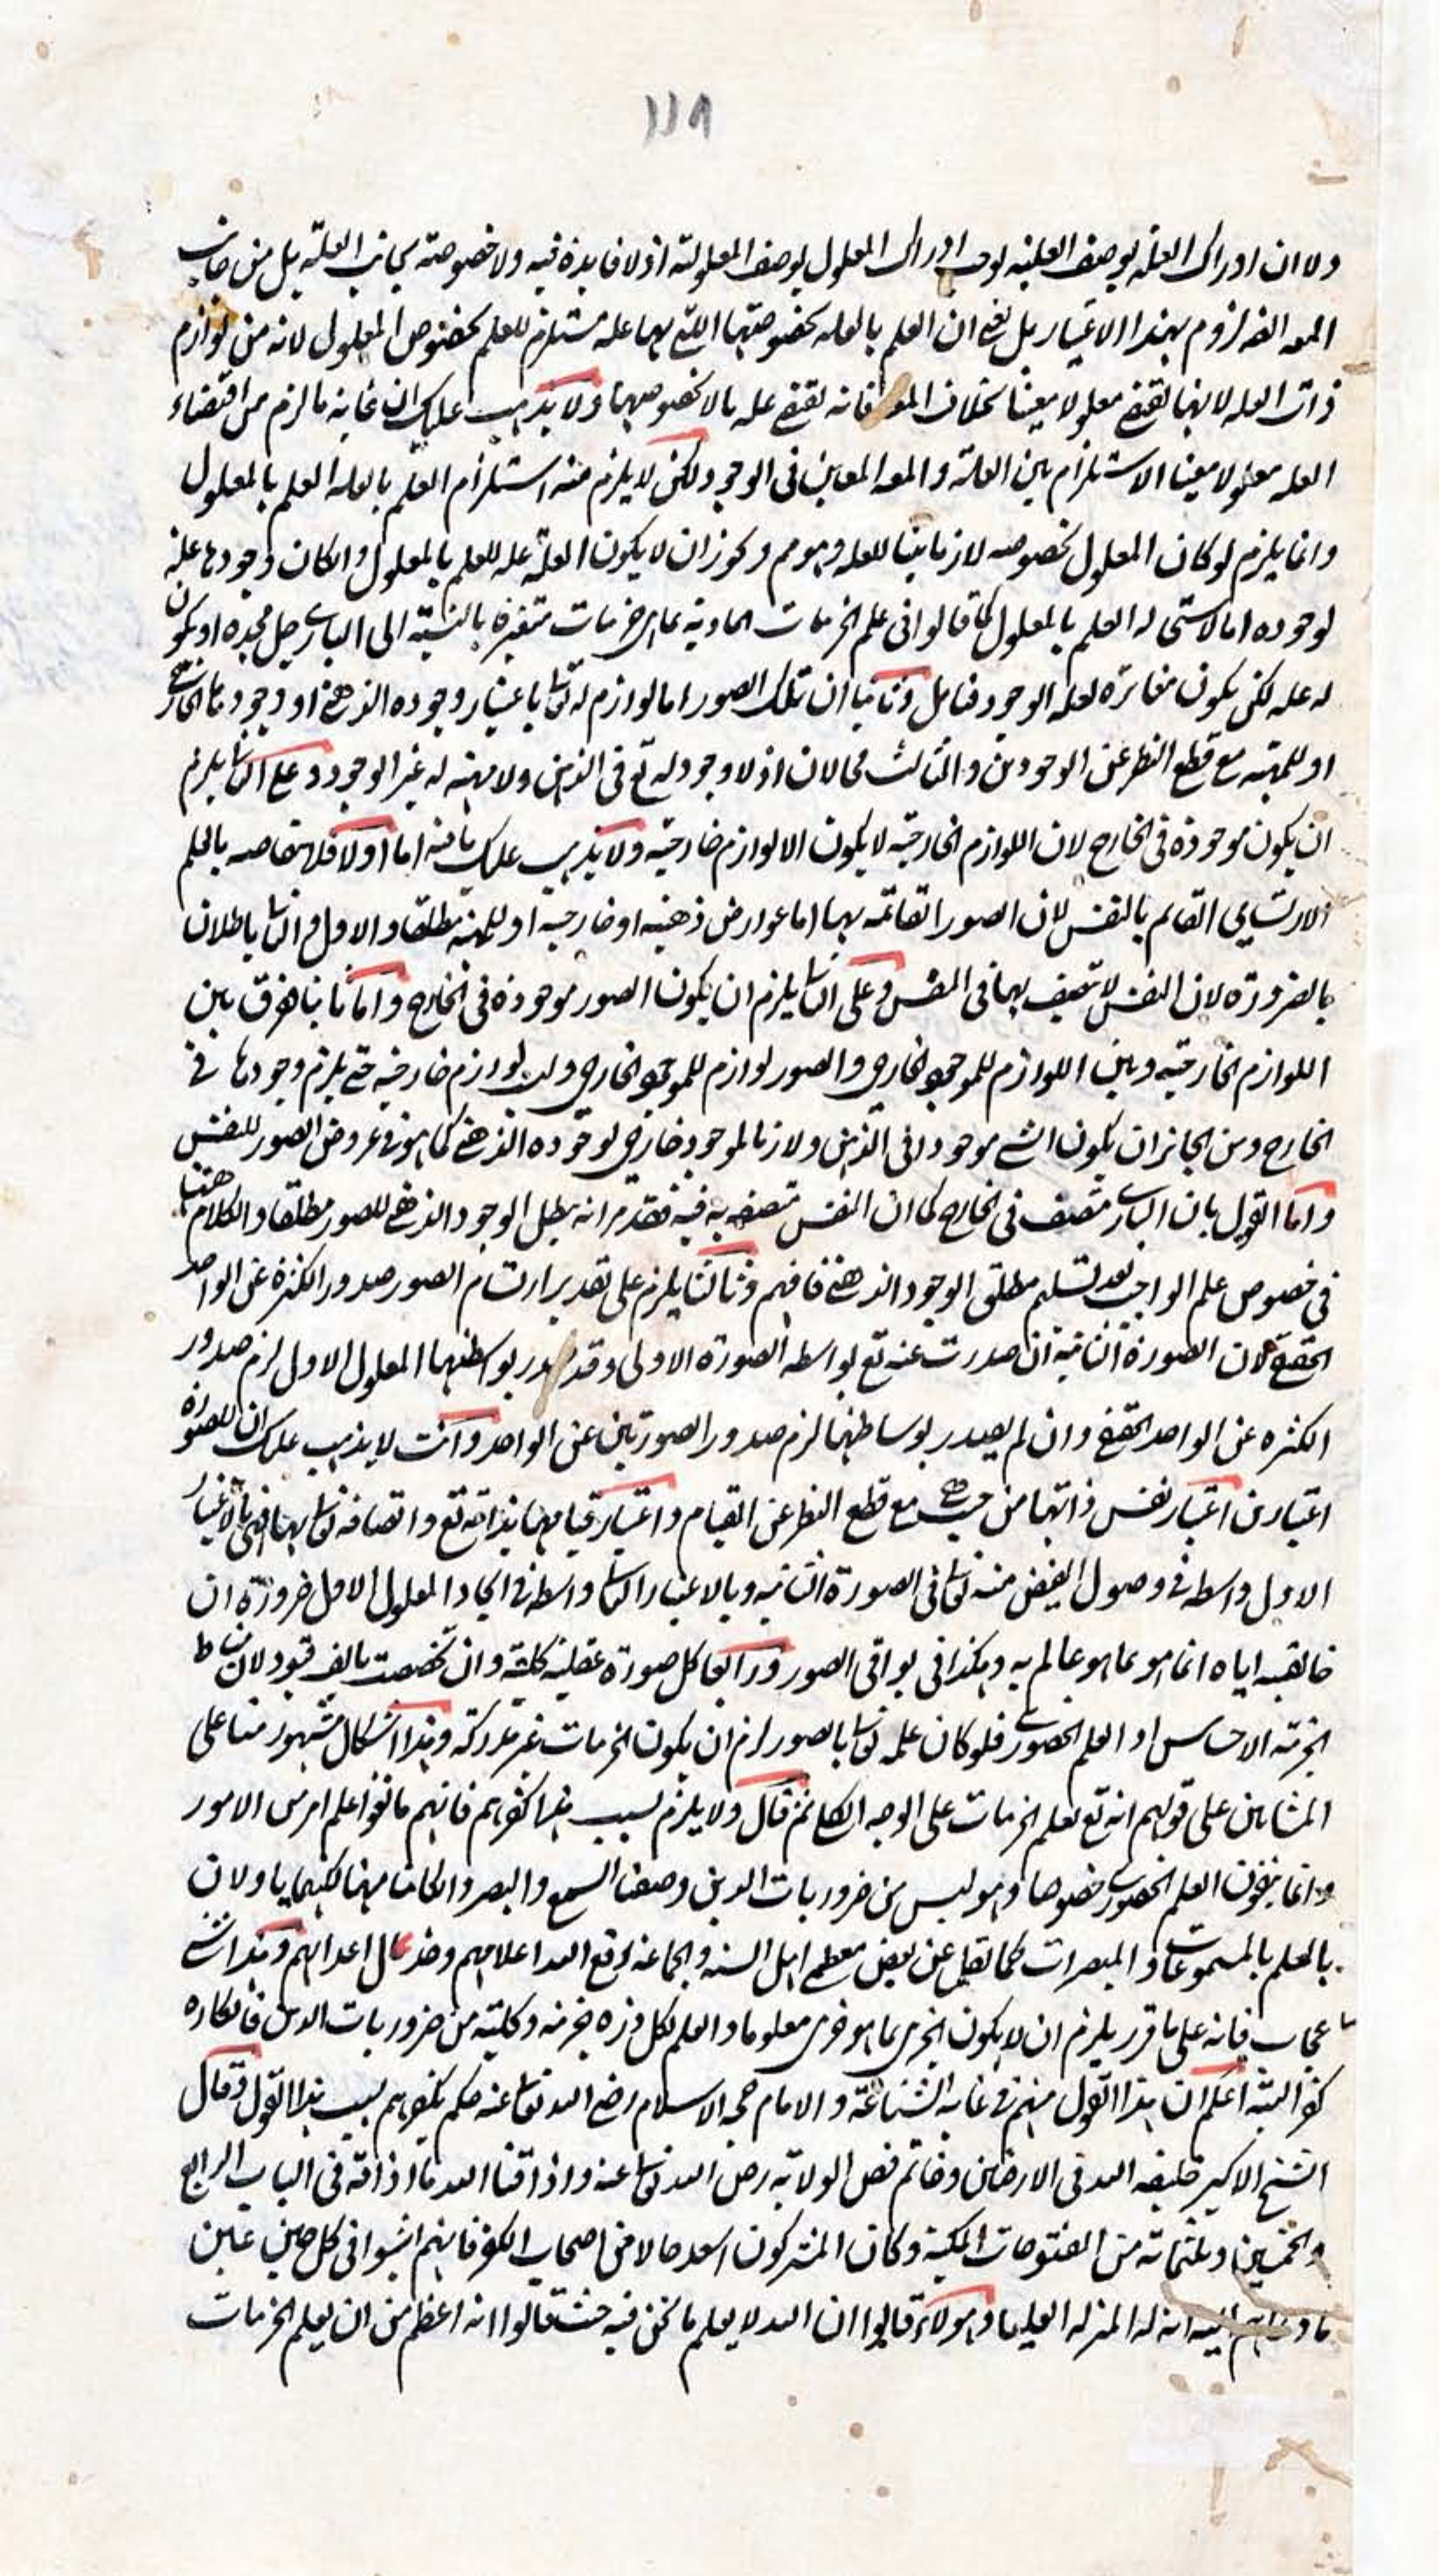 ١١٨
ولا ان ادراك العلة بوصف العلية يوجب ادراك المعلول بوصف المعلولية اذ لا فايدة فيه ولا خصوصية بجانب العلة بل من جانب
المعـ ايضا لزوم بهذا الاعتبار بل نعنى ان العلم بالعله بخصوصيتها اللتى بها علة مستلزم للعلم بخصوص المعلول لانه من لوازم
ذات العله لانها تقتضى معلولا معينا بخلاف المعـ فانه يقتضى علة ما لا بخصوصها ولا يذهب عليك ان غاية ما لزم من اقتضاء
العله معلولا معينا الاستلزام بين العلة والمعـ المعين فى الوجود لكن لا يلزم منه استلزام العلم بالعلة العلم بالمعلول
وانما يلزم لو كان المعلول بخصوصه لازما بينا للعلة وهو مم ويجوز ان لا يكون العلة علة للعلم بالمعلول وان كان وجودها علة
لوجوده اما لاستحالة العلم بالمعلول كما قالوا فى علم الجزئيات المادية بما هى جزئيات متغيرة بالنسبة الى البارى جل مجده او يكون
له علة لكن يكون مغائرة لعلة الوجود فتامل وثانيا ان تلك الصور اما لوازم له تعالى باعتبار وجوده الذهنى او وجوده الخارجى
او للمهية مع قطع النظر عن الوجودين والثالث محالان اذ لا وجود له تع فى الذهن ولا مهية له غير الوجود وعلى الثانى يلزم
ان يكون موجودة فى الخارج لان اللوازم الخارجية لا يكون الا لوازم خارجية ولا يذهب عليك ما فيه اما اولا فلانتقاضه بالعلم
الارتسامى القائم بالنفس لان الصور القائمة بها اما عوارض ذهنية او خارجية او للمهية مطلقا والاول والثالث باطلان
بالضرورة لان النفس لا تتصف بها فى النفس وعلى الثانى يلزم ان يكون الصور موجودة فى الخارج واما ثانيا فرق بين
اللوازم الخارجية وبين اللوازم للموجود الخارجى والصور لوازم للموجود الخارجى وليست لوازم خارجية حتى يلزم وجودها فى
الخارج ومن الجائز ان يكون الشئ موجودا فى الذهن ولازما لموجود خارجى لوجوده الذهنى كما هو فى عروض الصور للنفس
واما القول بان البارى متصف فى الخارج كما ان النفس متصفة به فيه فقد مر انه يبطل الوجود الذهنى للصور مطلقا والكلام ههنا
فى خصوص علم الواجب بعد تسليم مطلق الوجود الذهنى فافهم وثالثا يلزم على تقدير ارتسام الصور صدور الكثرة عن الواحد
الحقيقى لان الصورة الثانية ان صدرت عنه تع بواسطة الصورة الاولى وقد صدر بواسطتها المعلول الاول لزم صدور
الكثرة عن الواحد الحقيقى وان لم يصدر بوساطتها لزم صدور الصورتين عن الواحد وانت لا يذهب عليك ان للصورة
اعتبارين اعتبار نفس ذاتها من حيث هى مع قطع النظر عن القيام واعتبار قيامها بذاته تع واتصافه تعالى بها فهى بالاعتبار
الاول واسطة فى وصول الفيض منه تعالى فى الصورة الثانية وبالاعتبار الثانى واسطة فى ايجاد المعلول الاول ضرورة ان
خالقيته اياه انما هو بما هو عالم به وهكذا فى بواقى الصور ورابعا كل صورة عقلية كلية وان تخصصت بالف قيود لان مناط
الجزئية الاحساس او العلم الحضورى فلو كان علمه تعالى بالصور لزم ان يكون الجزئيات غير مدركة وهذا اشكال مشهور منا على
المشائين على قولهم انه تع يعلم الجزئيات على الوجه الكلى ثم قال ولا يلزم بسبب هذا كفرهم فانهم ما نفوا علم امر من الامور
وانما ينفون العلم الحضورى خصوصا وهو ليس من ضروريات الدين وصفتا السمع والبصر وان كانتا منها لكنهما ياولان
بالعلم بالمسموعات والمبصرات كما نقل عن بعض معظم اهل السنة والجماعة رفع الله اعلامهم وخذل اعدائهم وهذا شئ
عجاب فانه على ما قرر يلزم ان لا يكون الجزئ بما هو جزئ معلوما والعلم لكل ذرة جزئية وكلية من ضروريات الدين فانكاره
كفر البتة اعلم ان هذا القول منهم فى غاية الشناعة والامام حجة الاسلام رضى الله تعالى عنه حكم بكفرهم بسبب هذا القول وقال
الشيخ الاكبر خليفة الله فى الارضين وخاتم فص الولاية رضى الله تعالى عنه واذاقنا الله ما اذاقه فى الباب الرابع
والخمسين وثلثمائة من الفتوحات المكية وكان المشركون اسعد حالا من اصحاب الكفر فانهم اثبتوا فى كل حين غبن
انه له المنزلة العليا وهولاء قالوا ان الله لا يعلم ما نحن فيه حيث قالوا انه اعظم من ان يعلم الجزئيات